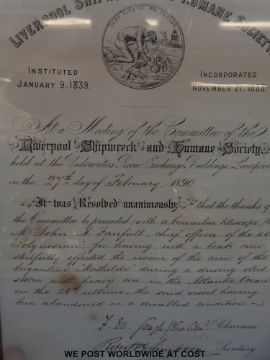 LIVERPOOL SHIPWRECK HUMANE SOCIETY
INSTITUTED
JANUARY 9. 1839.
INCORPORATED
NOVEMBER 21,
At a Meeting of the Committee of the
Liverpool Shipwreck and Humane Society,
held at the Underwriters Room, Exchange Buildings, Liverpool
on the 27th day of February 1890
It was Resolved unanimously, that the thanks of
the Committee be presented (with a binocular telescope) to
Mr John chief officer of the s.s.
Polynesian for having with a boats crew
skilfully effected the rescue of the crew of the
brigantine Mathilde during a
with heavy sea in the Atlantic Ocean
on the the said vessel having
been abandoned in a disabled condition
Chairman
Secretary
WE POST WORLDWIDE AT COST